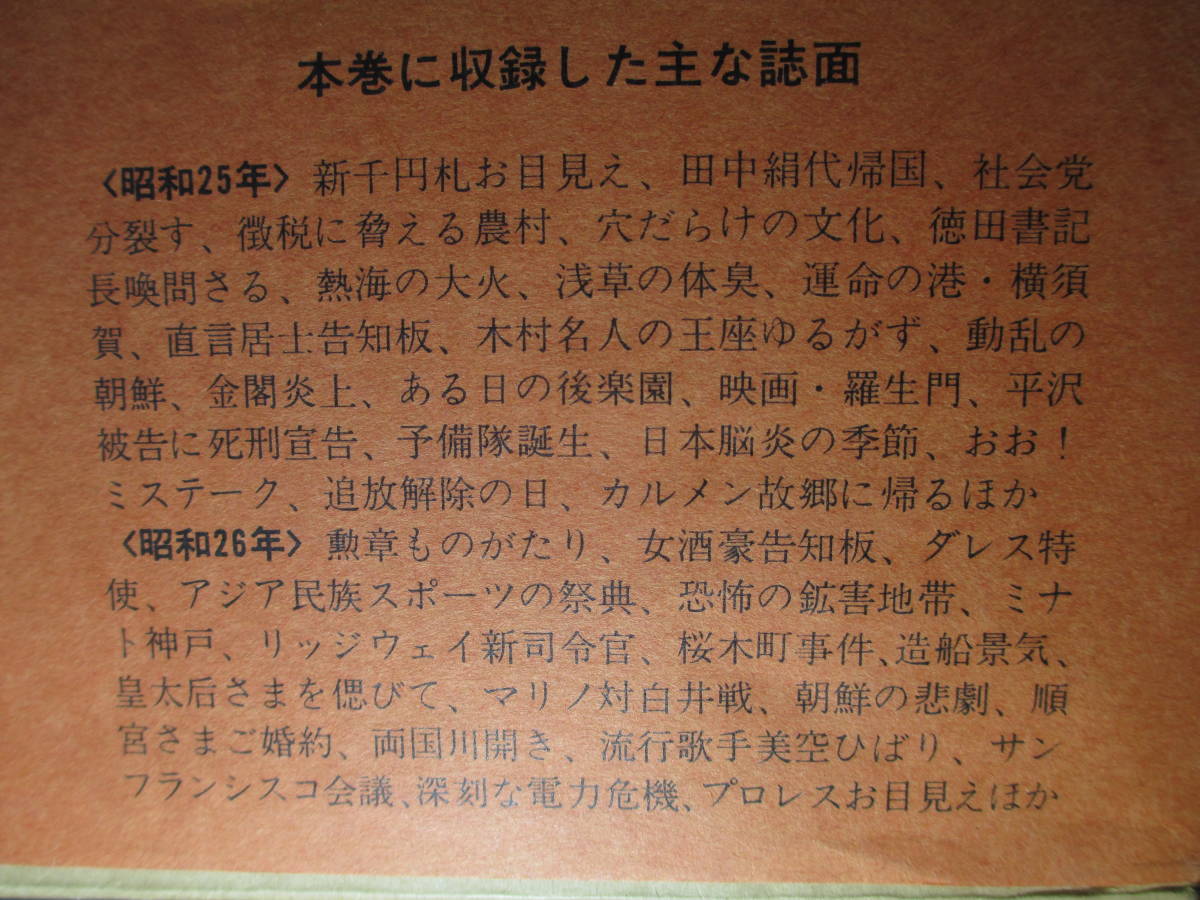 本巻に収録した主な誌面
〈昭和25年〉新千円札お目見え、田中絹代帰国、社会党
分裂す、徴税に脅える農村、穴だらけの文化、徳田書記
長喚問さる、熱海の大火、浅草の体臭、運命の港・横須
賀、直言居士告知板、木村名人の王座ゆるがず、動乱の
朝鮮、金閣炎上、ある日の後楽園、映画・羅生門、平沢
被告に死刑宣告、予備隊誕生、日本脳炎の季節、おお！
ミステーク、追放解除の日、カルメン故郷に帰るほか
〈昭和26年〉勲章ものがたり、女酒豪告知板、ダレス特
使、アジア民族スポーツの祭典、恐怖の鉱害地帯、ミナ
ト神戸、リッジウェイ新司令官、桜木町事件、造船景気、
皇太后さまを偲びて、マリノ対白井戦、朝鮮の悲劇、順
宮さまご婚約、両国川開き、流行歌手美空ひばり、サン
フランシスコ会議、深刻な電力危機、プロレスお目見えほか